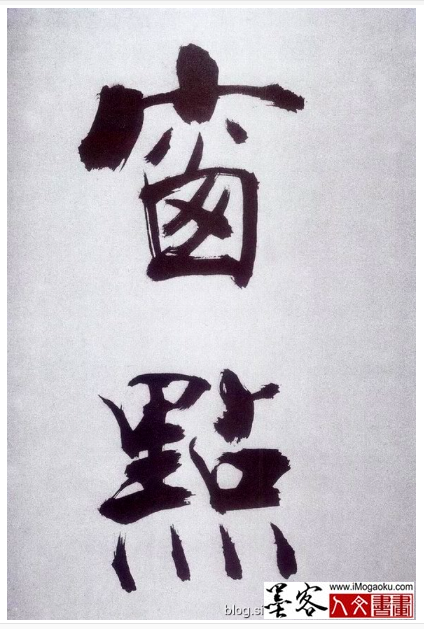 窗
點
blog.si
墨客
www.iMogaoku.com
人文書畫